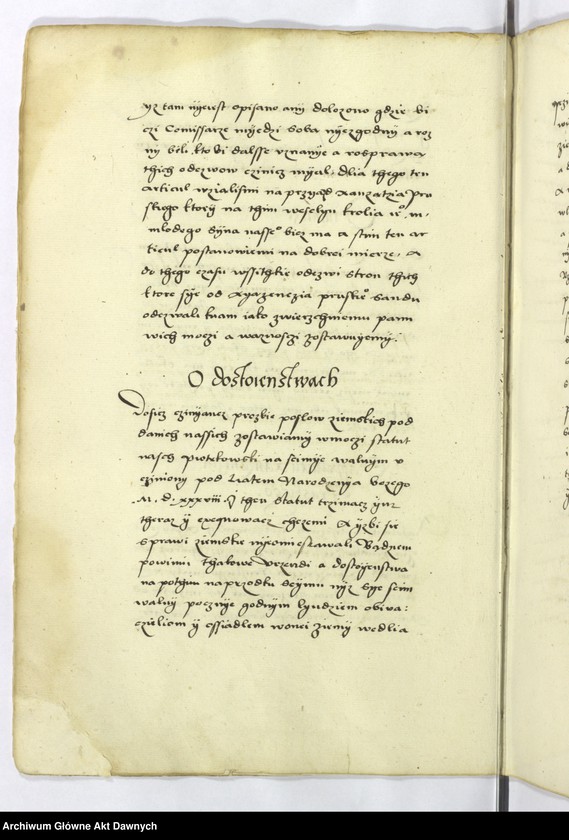 yz tam nyeiest opisano any dolozono gdzie bi
czi Comissarze myedzi soba nyezgodny a roz
ny beli. kto bi dalsse vznanye a rosprawę
thich odezwow czinicz myal. dlia thego ten
articul wzialismi na przyazd xanzatzia Pru
skiego ktory na thim weselyu krolia ie° m.
mlodego syna nasse° bicz ma a stim ten ar
ticul postanowiemi na dobrei mierze. A
do thego czasu wssithkie odezwi stron thich
ktore sye od xyazenczia pruskie° sandu
odezwali knam iako zwierzchniemu panu
wich moczi a waznosczi zostawuyemy.
O dostoienstwach
Dosicz czinyancz prozbie poslow ziemskich pod
danich nassich zostawiamy wmoczi statut
nasch piotrkowski na seimye walnym v
czyniony pod Liatem Narodzenya bozego
M. D. xxxviii. y then statut trzimacz yusz
theraz y exequowacz chczemi A yzbi sie
sprawi ziemskie nyeomieskawali Bądziem
powinni thakowe vrzendi a dostoyenstwa
na pothim naprzodku Seymu nyz sye seim
walny pocznye godnym lyudziem obiwa:
czieliom y ossiadlem wonei ziemy wedlia
Archiwum Główne Akt Dawnych